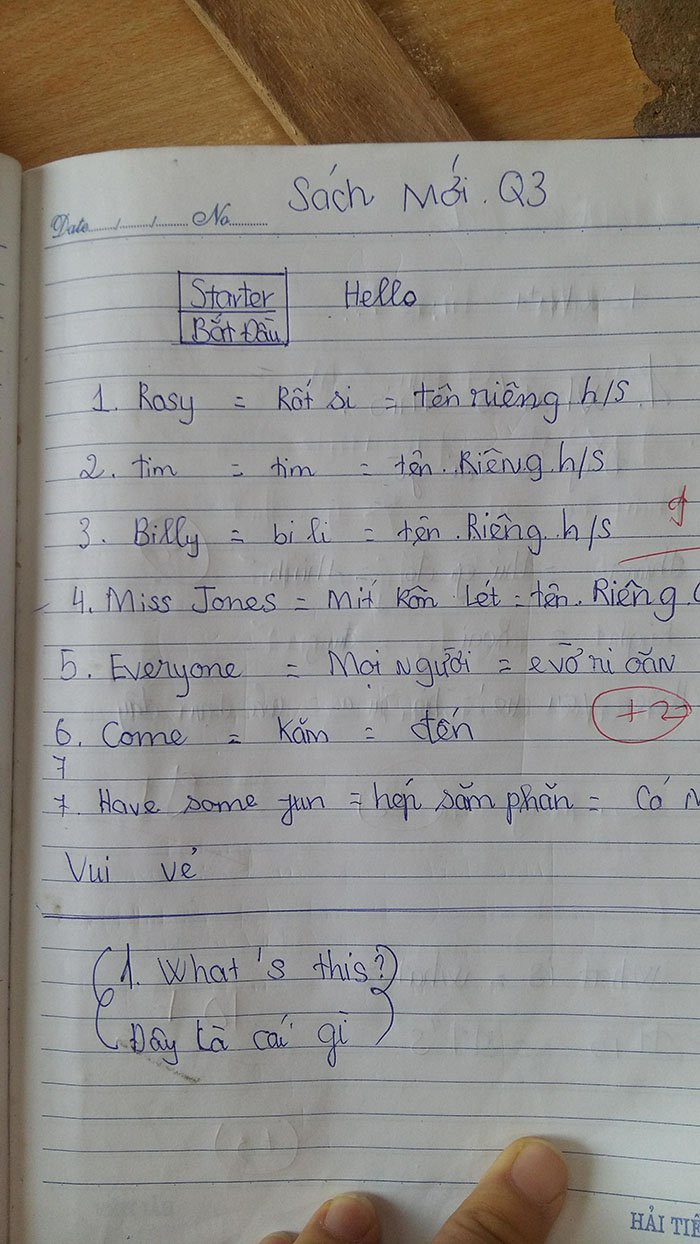 Sách Mới. Q3
Date..../..../........ No...........
Starter Hello
Bắt Đầu
1. Rosy = Rốt si = tên riêng h/S
2. tim = tim = tên. Riêng h/S
3. Billy = bi li = tên. Riêng h/S
4. Miss Jones = Mít Kôn Lét = tên. Riêng (
5. Everyone = Mọi người = evở ri oăn
6. Come = Kăm = đến
+2
7
7. Have some fun = hep săm phăn = Có N
Vui vẻ
(1. What's this?)
(Đây là cái gì)
HẢI TIẾ